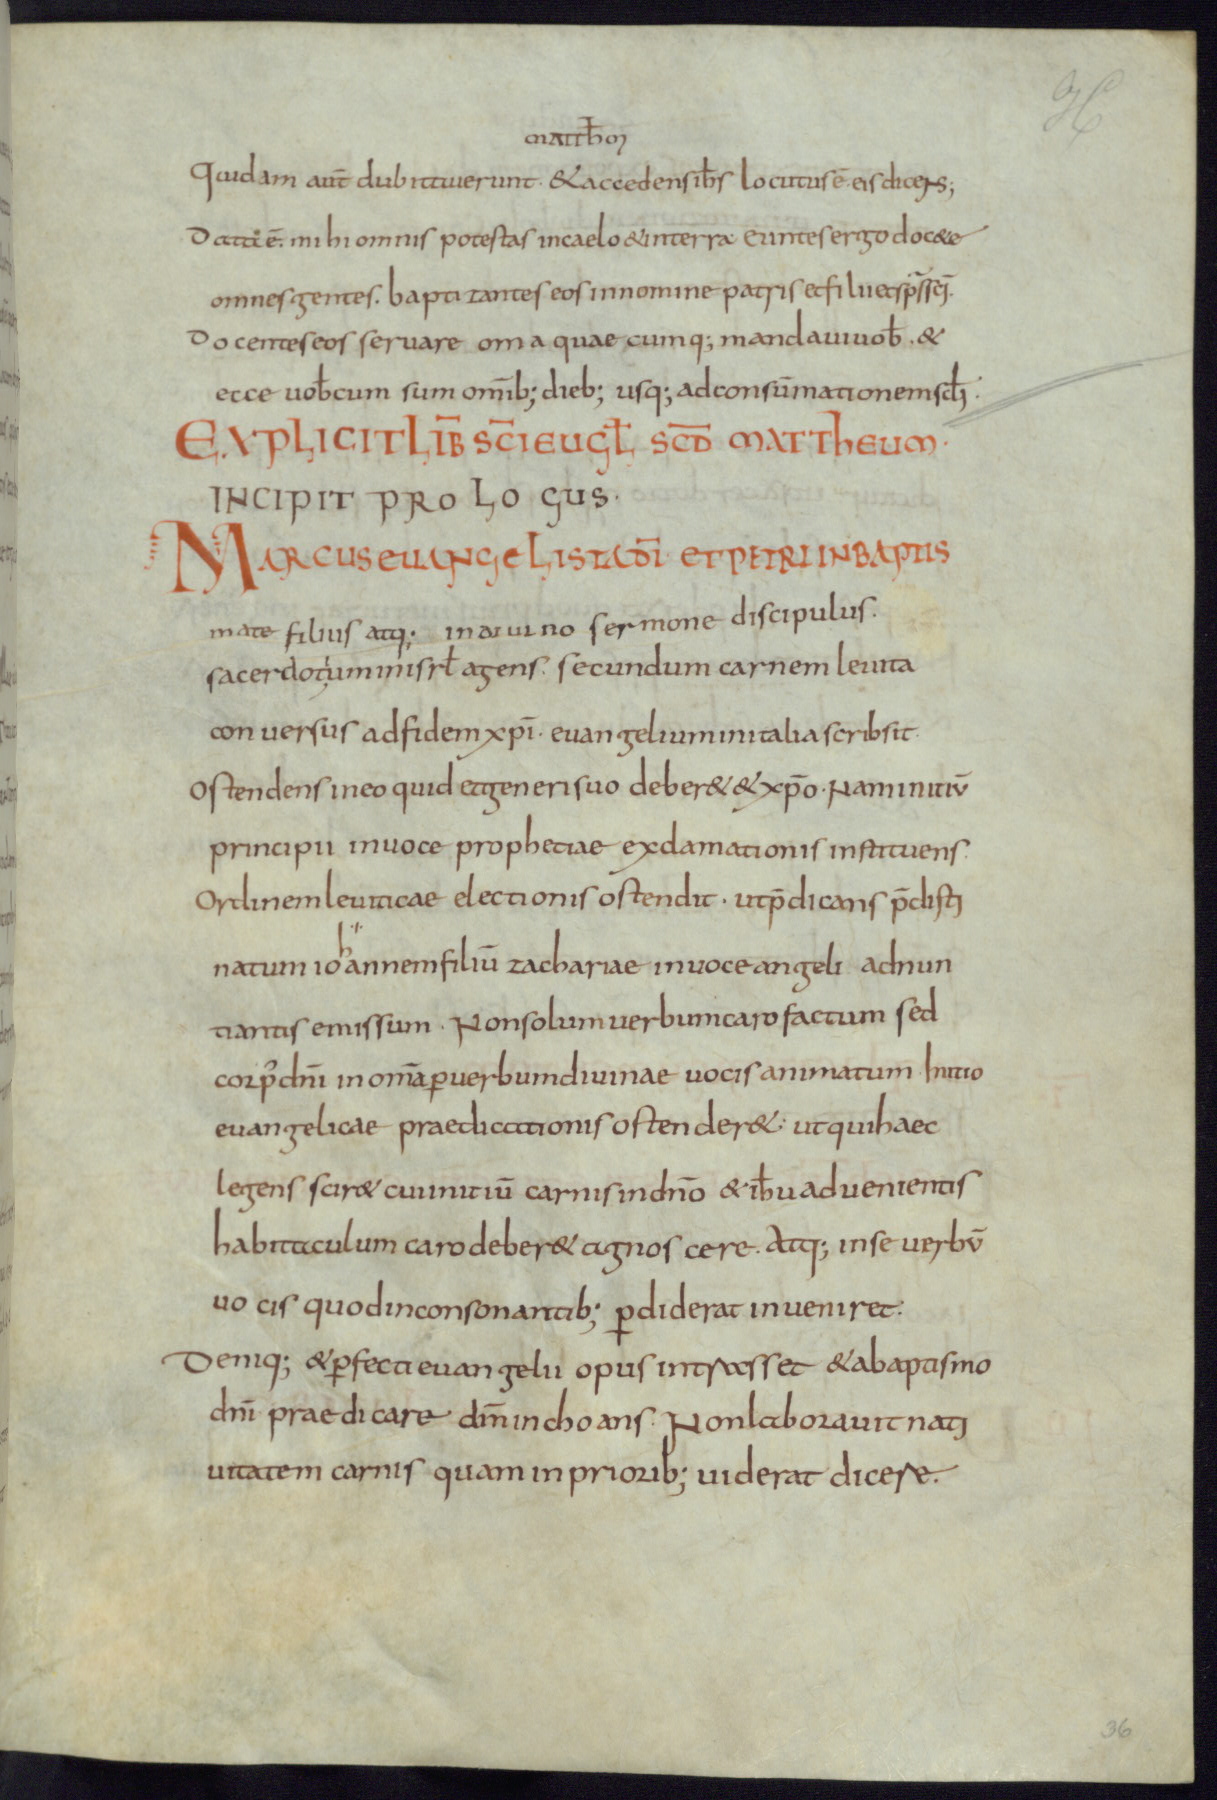 36
matth̄m
Quidam aut̄ dubitaverunt. & accedens ih̄s locutus ē. eis dicens;
Data ē. mihi omnis potestas in caelo & in terra Euntes ergo doc&e
omnes gentes. baptizantes eos in nomine patris et filii et sp̄s sc̄i.
Docentes eos servare om̄a quae cumq; mandavi vob̄. &
ecce vob̄cum sum om̄ib; dieb; usq; ad consūmationem sc̄li.
EXPLICIT LIB̄ SC̄I EUGL̄ SCD̄ MATTHEUM.
INCIPIT PROLOGUS.
MARCUS EVANGELISTA DĪ ET PETRI IN BAPTIS
mate filius atq; in divino sermone discipulus.
sacerdotium in isrl̄ agens. secundum carnem levita
conversus ad fidem xp̄i. evangelium in italia scribsit.
Ostendens in eo quid et generi suo deber& & xp̄o. Nam initiū
principii in voce prophetiae exclamationis instituens.
Ordinem leviticae electionis ostendit. ut p̄dicans p̄desti
natum iohannem filiū zachariae in voce angeli adnun
tiantis emissum. Non solum verbum caro factum sed
corp̄ dn̄i in om̄a p̱ verbum divinae vocis animatum. Initio
evangelicae praedicationis ostender&. ut qui haec
legens scir& cui initiū carnis in dn̄o & ih̄u advenientis
habitaculum caro deber& agnoscere. Atq; in se verbū
vocis quod in consonantib; p̱diderat inveniret.
Deniq; & p̱fecti evangelii opus intrasset & a baptismo
dn̄i praedicare dm̄ inchoans. Non laboravit nati
vitatem carnis quam in priorib; viderat dicere.
36